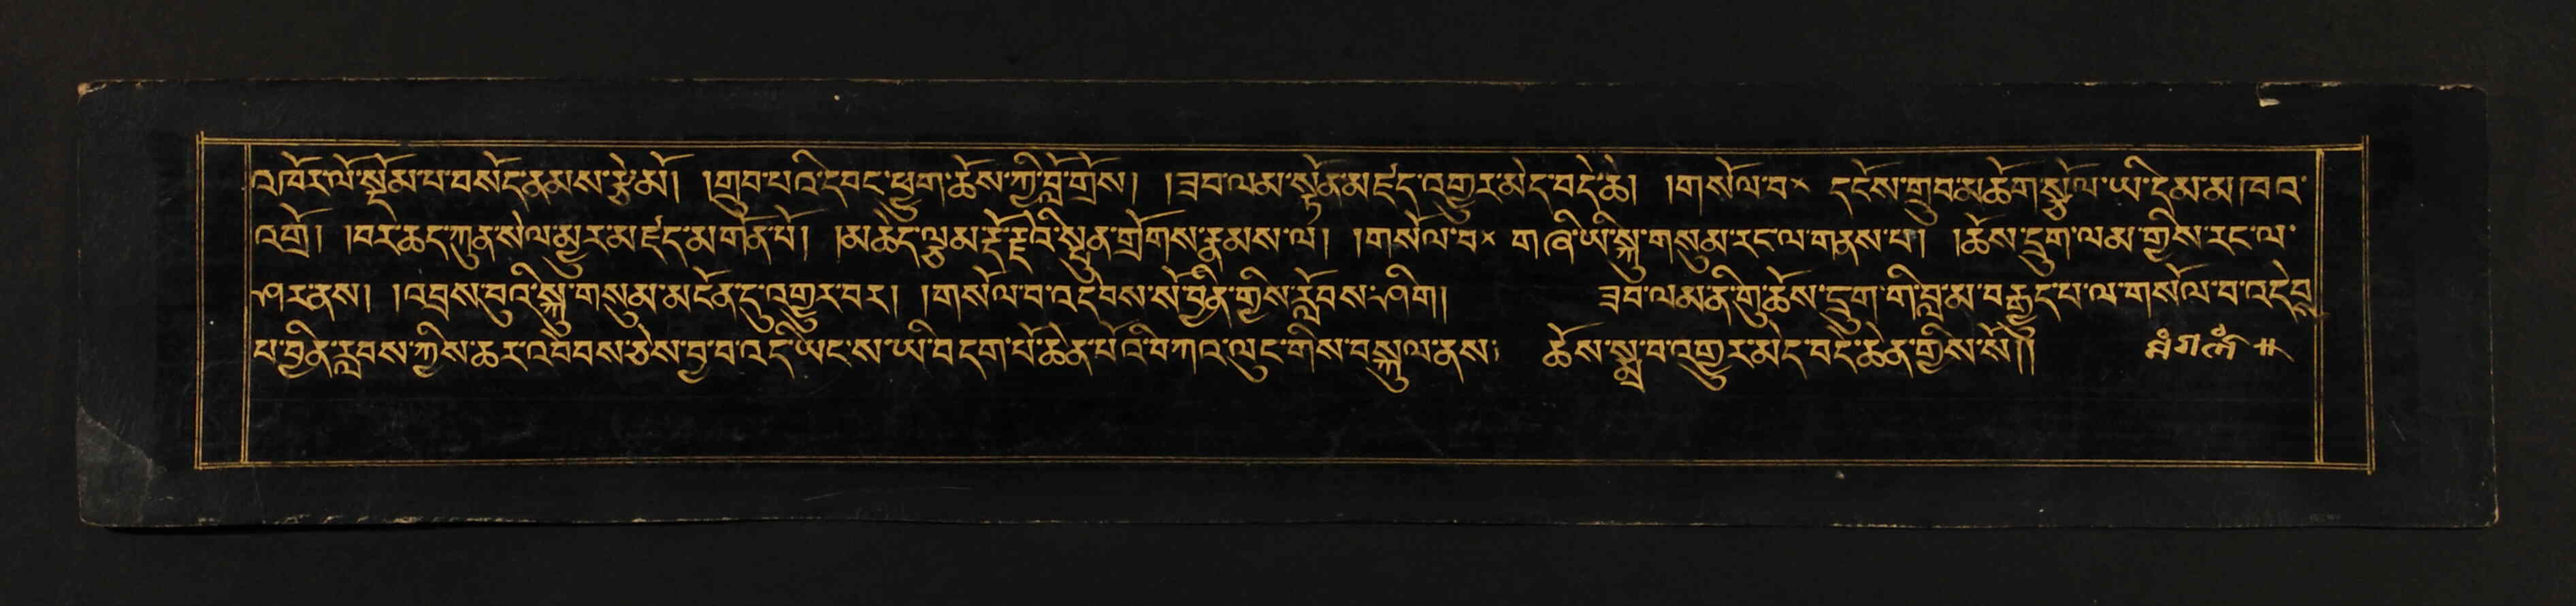 འཁོར་ལོ་སྡོམ་པ་བསོད་ནམས་རྩེ་མོ། །གྲུབ་པའི་དབང་ཕྱུག་ཆོས་ཀྱི་བློ་གྲོས། །ཟབ་ལམ་སྟོན་མཛད་འགྱུར་མེད་བདེ་ཆེ། །གསོལ་བ་× དངོས་གྲུབ་མཆོག་སྩོལ་ཡི་དམ་མཁའ་
འགྲོ། །བར་ཆད་ཀུན་སེལ་མྱུར་མཛད་མགོན་པོ། །མཆེད་ལྕམ་རྡོ་རྗེའི་སྤུན་གྲོགས་རྣམས་ལ། །གསོལ་བ་× གཞི་ཡི་སྐུ་གསུམ་རང་ལ་གནས་པ། །ཆོས་དྲུག་ལམ་གྱིས་རང་ལ་
ཤར་ནས། །འབྲས་བུའི་སྐུ་གསུམ་མངོན་དུ་འགྱུར་བར། །གསོལ་བ་འདེབས་སོ་བྱིན་གྱིས་རློབས་ཤིག། ཟབ་ལམ་ནི་གུ་ཆོས་དྲུག་གི་བླ་མ་བརྒྱུད་པ་ལ་གསོལ་བ་འདེབ
པ་བྱིན་རླབས་ཀྱིས་ཆར་འབེབས་ཅེས་བྱ་བ་འདི་ཡང་ས་ཡི་བདག་པོ་ཆེན་པོའི་བཀའ་ལུང་གིས་བསྐུལ་ནས། ཆོས་སྨྲ་བ་འགྱུར་མེད་བདེ་ཆེན་གྱིས་སོ།།